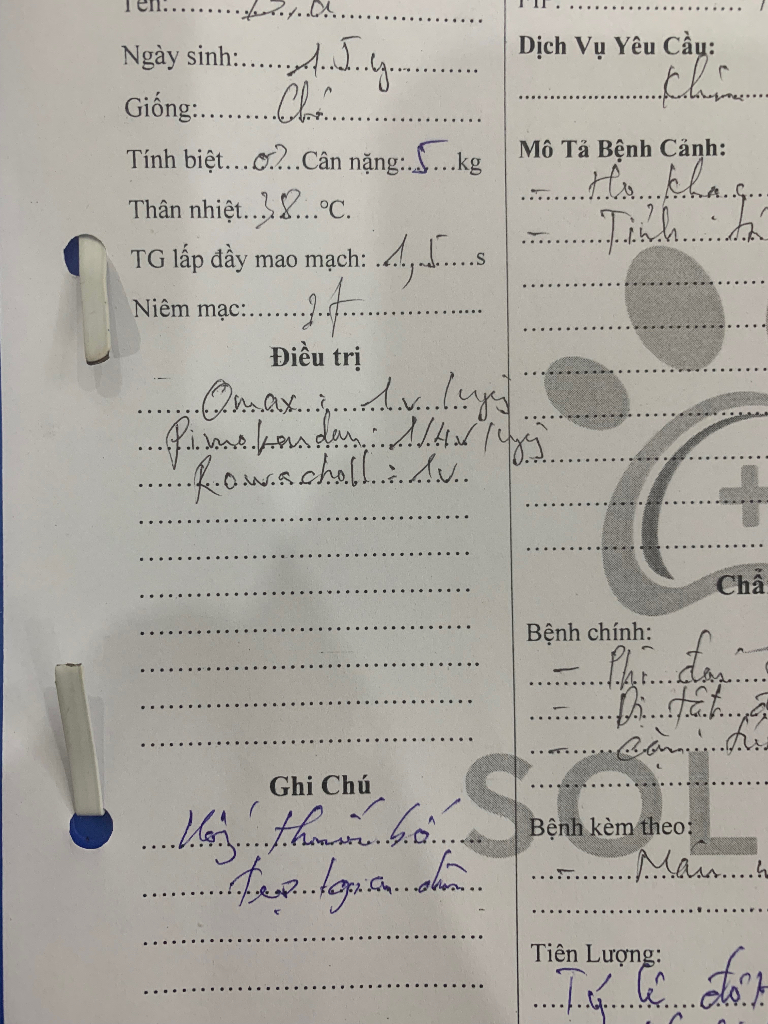 Tên:
Ngày sinh: 15y
Giống: Chó
Tính biệt Cân nặng: 5 kg
Thân nhiệt 38 °C.
TG lấp đầy mao mạch: 1,5 s
Niêm mạc:
Điều trị
Omax: 1v/
Pimobendan: 1/4v/
Rowachol: 1v
Ghi Chú
Uống thuốc bổ
Dịch Vụ Yêu Cầu:
Khám
Mô Tả Bệnh Cảnh:
- Ho khạc
- Tỉnh
+
Chẩ
Bệnh chính:
- Phì đại
- Dị tật
-
SOL
Bệnh kèm theo:
- Mãn
Tiên Lượng:
Tỷ lệ đột